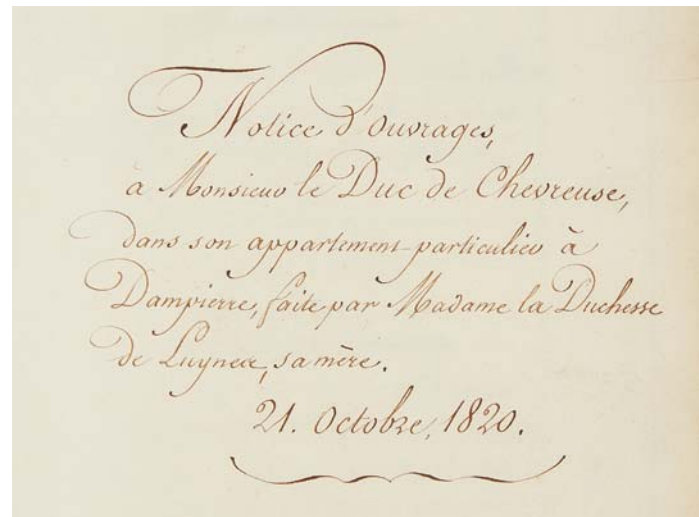 Notice d'ouvrages,
à Monsieur le Duc de Chevreuse,
dans son appartement particulier à
Dampierre, faite par Madame la Duchesse
de Luynes, sa mère.
21. Octobre, 1820.